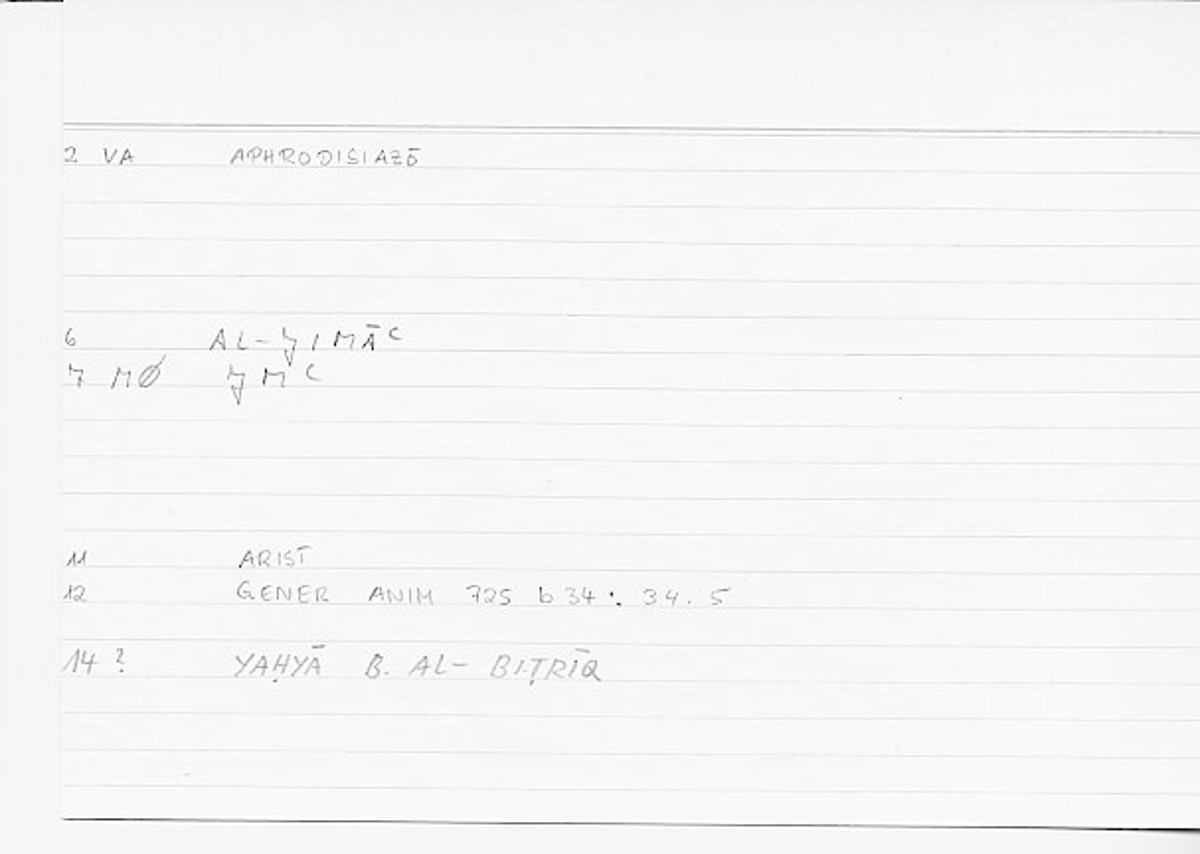 2 VA APHRODISIAZŌ
6 AL-ǦIMĀʿ
7 MØ ǦMʿ
11 ARIST
12 GENER ANIM 725 b 34 : 34.5
14 ? YAḤYĀ B. AL-BIṬRĪQ